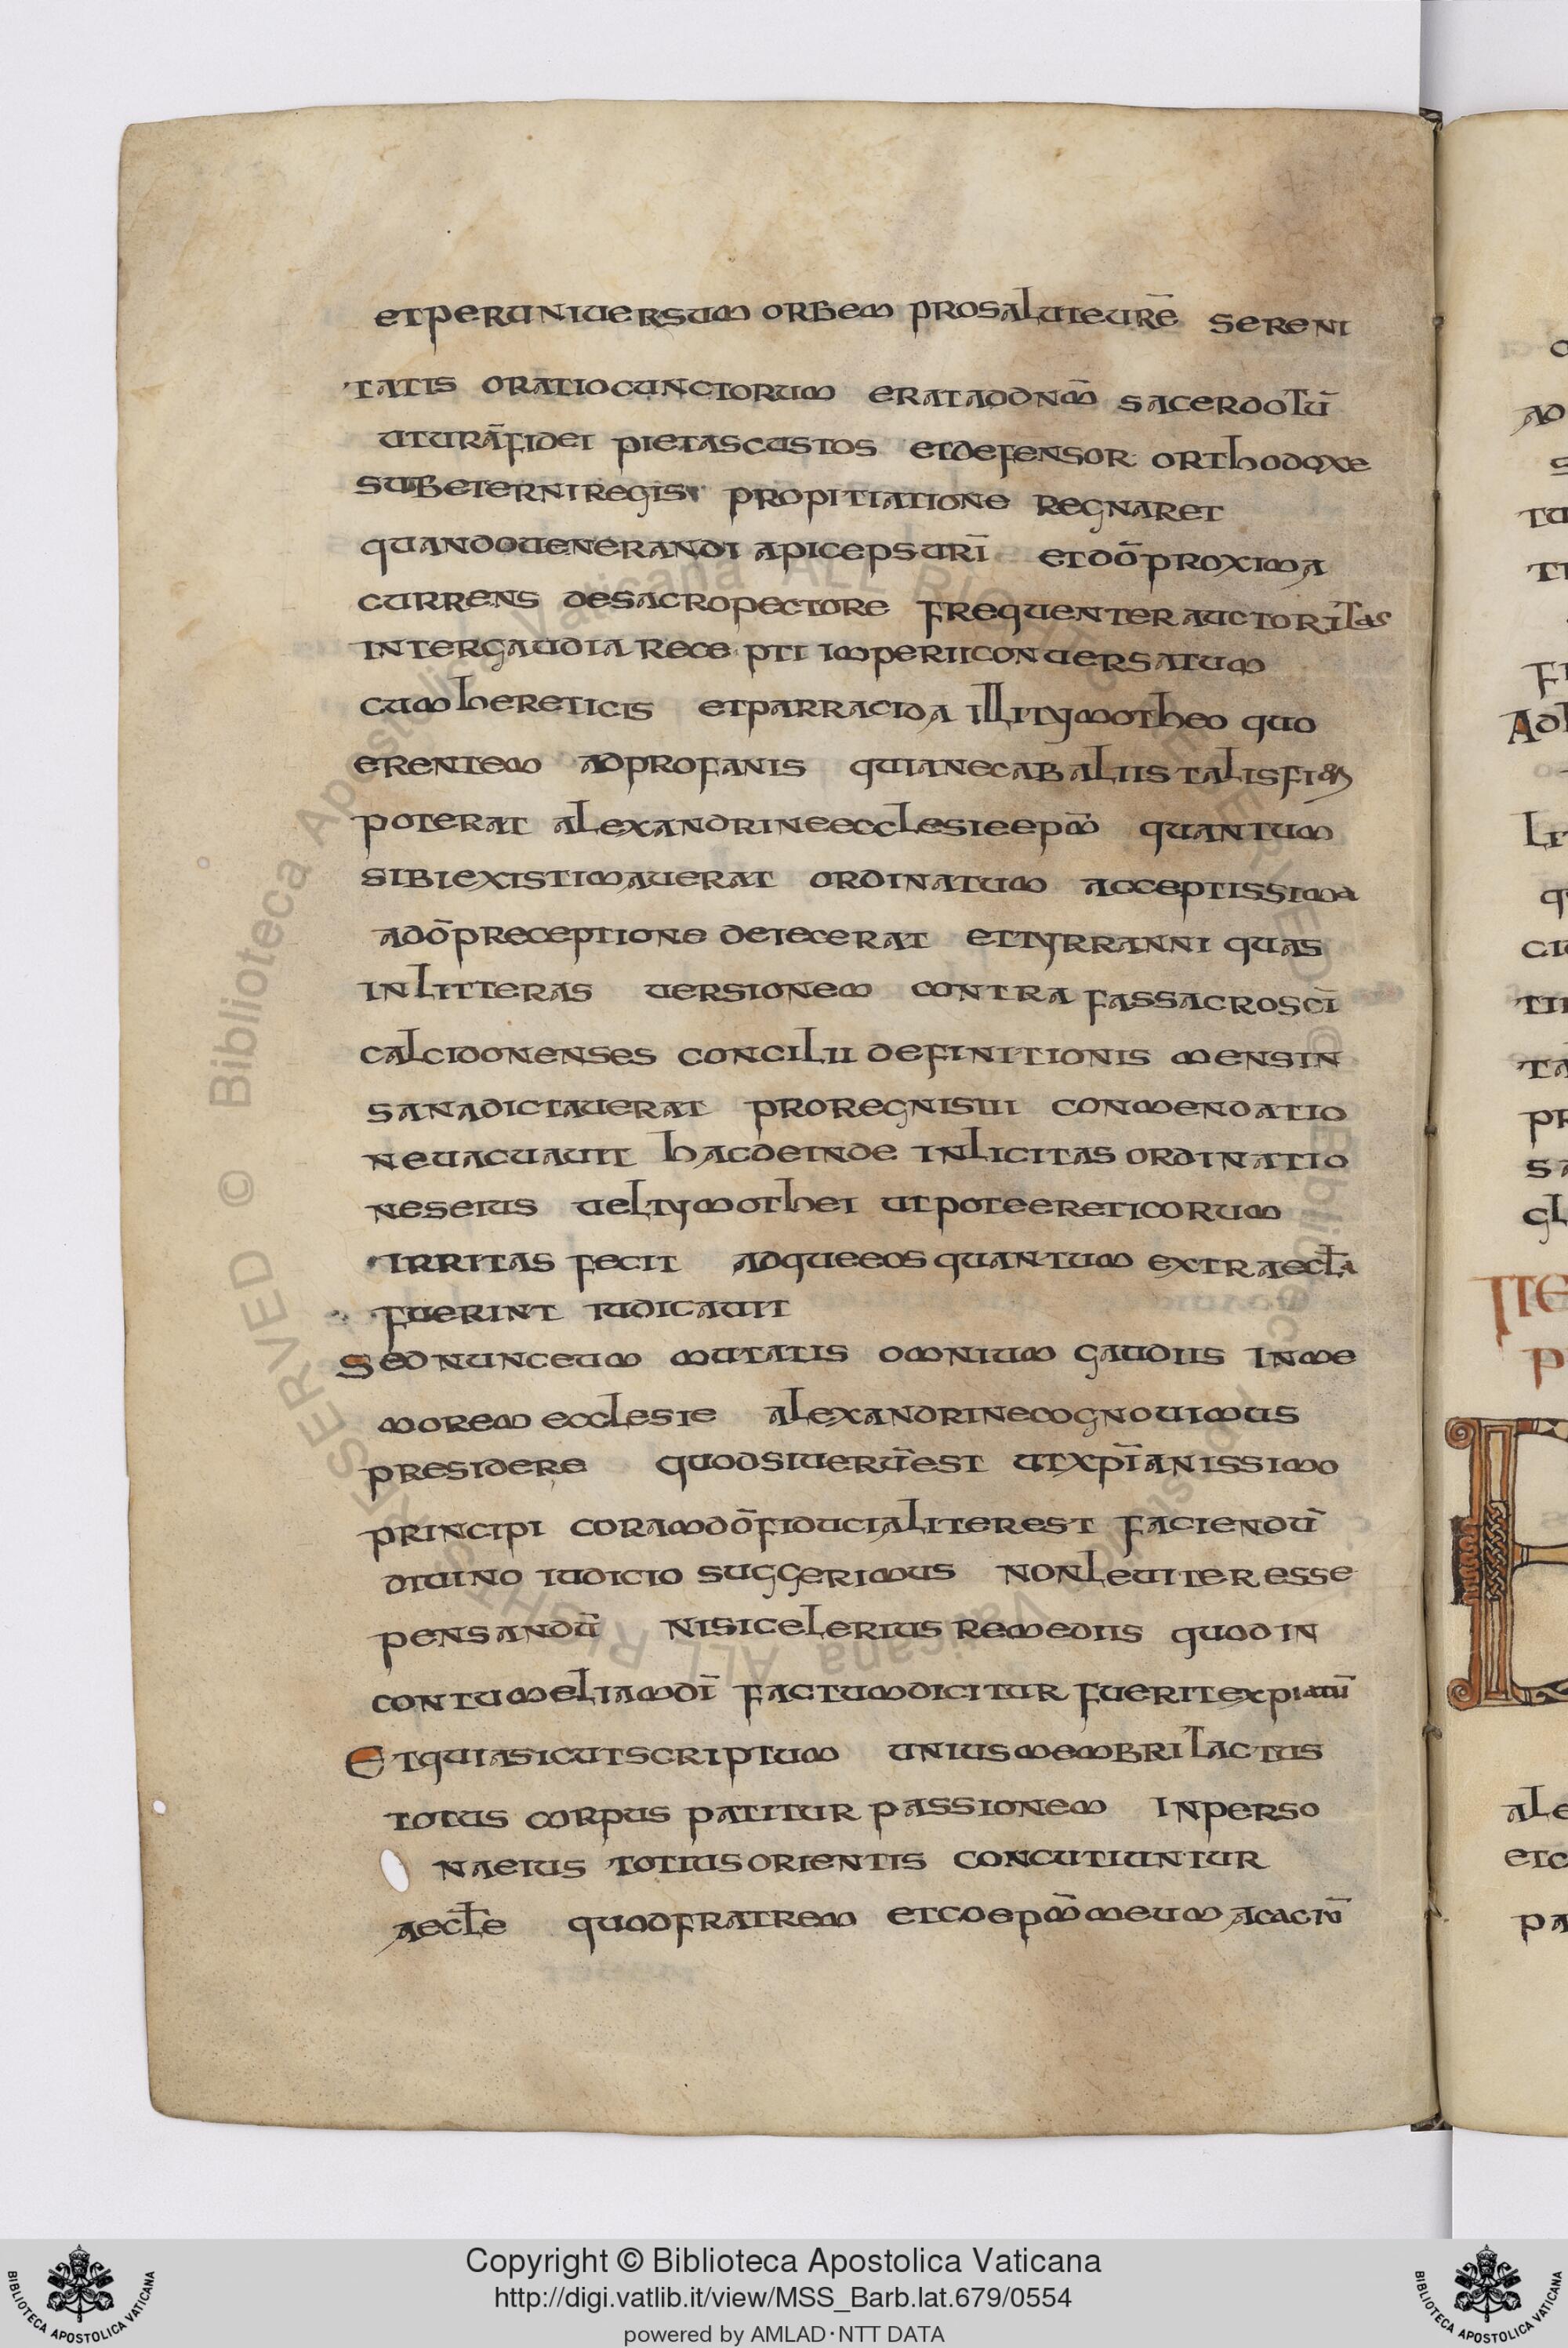 et per uniuersum orbem pro salute ur̄e sereni
tatis oratio cunctorum erat ad dnm̄ sacerdotū
ut urā fidei pietas custos et defensor orthodoxe
sub eterni regis propitiatione regnaret
quando uenerandi apiceps urī et dō proxima
currens de sacro pectore frequenter auctoritas
inter gaudia recepti imperii conuersatum
cum hereticis et parracida illi tymotheo quo
erentem ad profanis quia nec ab aliis talis fieri
poterat alexandrine ecclesie epm̄ quantum
sibi existimauerat ordinatum acceptissima
a dō preceptione deiecerat et tyrranni quas
in litteras uersionem contra fas sacroscī
calcidonenses concilii definitionis mens in
sana dictauerat pro regni sui conmendatio
ne uacuauit hac deinde inlicitas ordinatio
nes eius uel tymothei utpote ereticorum
irritas fecit adque eos quantum extra ecl̄a
fuerint iudicauit
Sed nunc eum mutatis omnium gaudiis in me
morem ecclesie alexandrine cognouimus
presidere quod si uerū est ut xp̄ianissimo
principi coram dō fiducialiter est faciendū
diuino iudicio suggerimus non leuiter esse
pensandū nisi celerius remediis quod in
contumeliam dī factum dicitur fuerit expiatū
Et quia sicut scriptum unius membri tactus
totus corpus patitur passionem in perso
na eius totius orientis concutiuntur
aecl̄e quod fratrem et coepm̄ meum acaciū
Copyright © Biblioteca Apostolica Vaticana
http://digi.vatlib.it/view/MSS_Barb.lat.679/0554
powered by AMLAD·NTT DATA
BIBLIOTECA APOSTOLICA VATICANA
BIBLIOTECA APOSTOLICA VATICANA